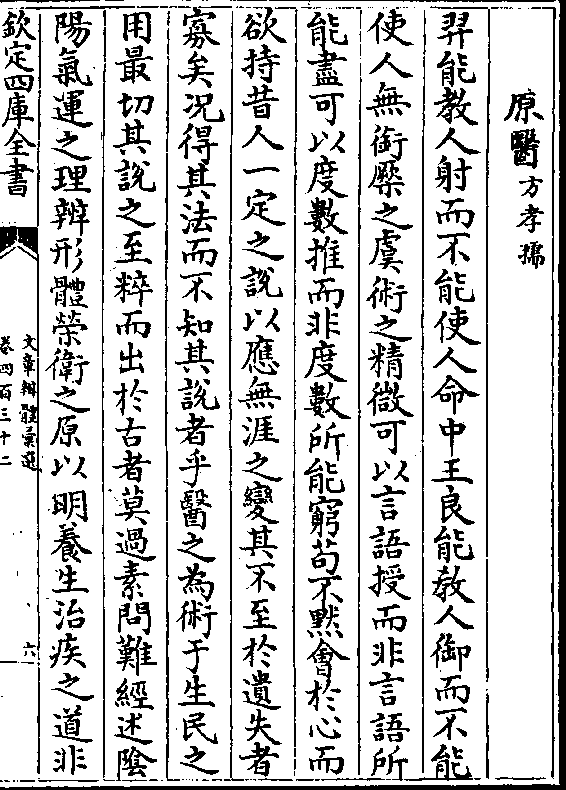 原醫方孝孺
羿能教人射而不能使人命中王良能教人御而不能
使人無銜橛之虞術之精微可以言語授而非言語所
能盡可以度數推而非度數所能窮苟不默會於心而
欲持昔人一定之說以應無涯之變其不至於遺失者
寡矣况得其法而不知其說者乎醫之為術于生民之
用最切其說之至粹而出於古者莫過素問難經述陰
陽氣運之理辨形體榮衛之原以明養生治疾之道非
欽定四庫全書
文章辨體彙選
卷四百三十二
六